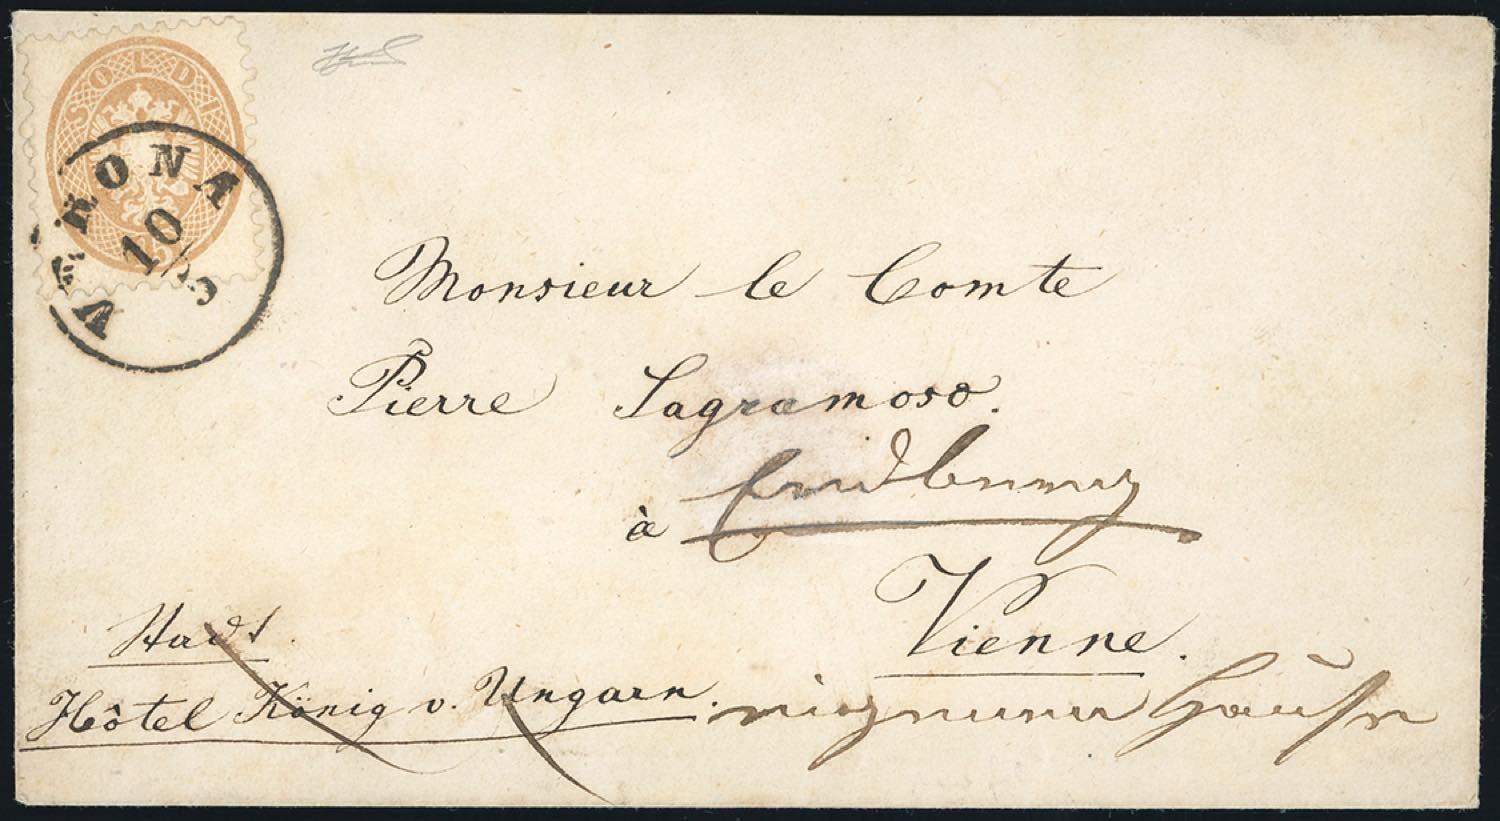 SOLDI
15
VERONA
10/5
Monsieur le Comte
Pierre Sagramoso.
à
Vienne.
Stadt.
Hôtel König v. Ungarn.